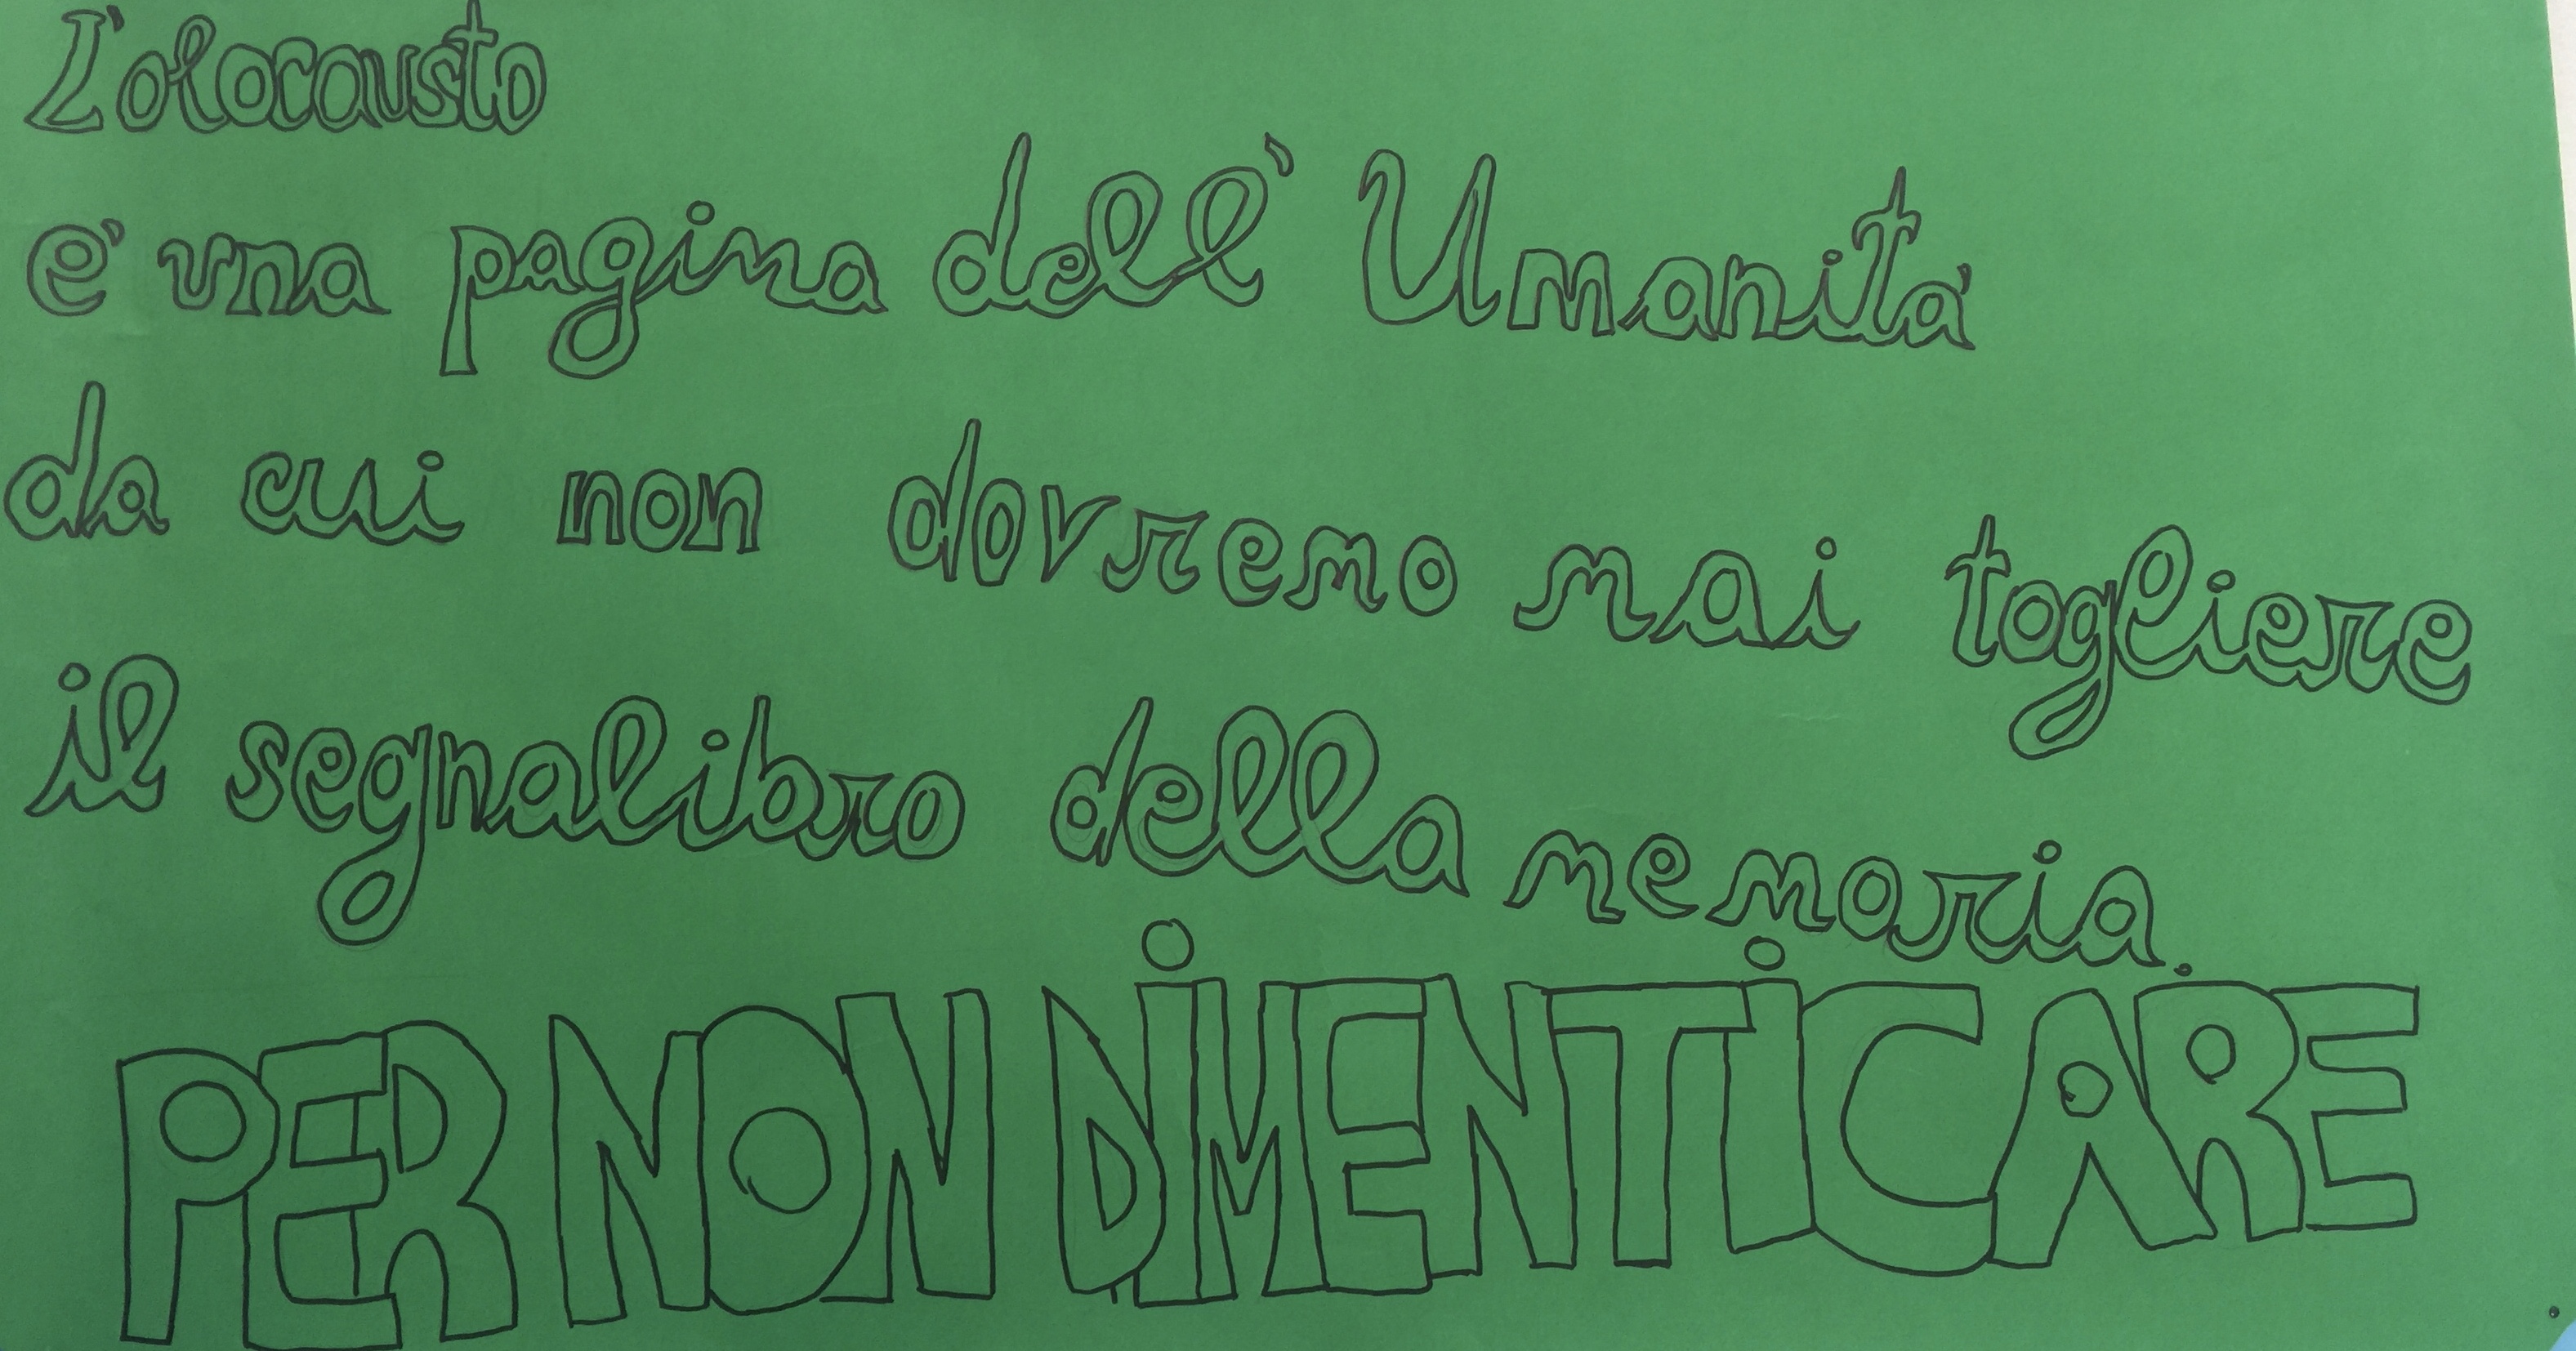 L'olocausto
e' una pagina dell' Umanita'
da cui non dovremo mai togliere
il segnalibro della memoria.
PER NON DIMENTICARE